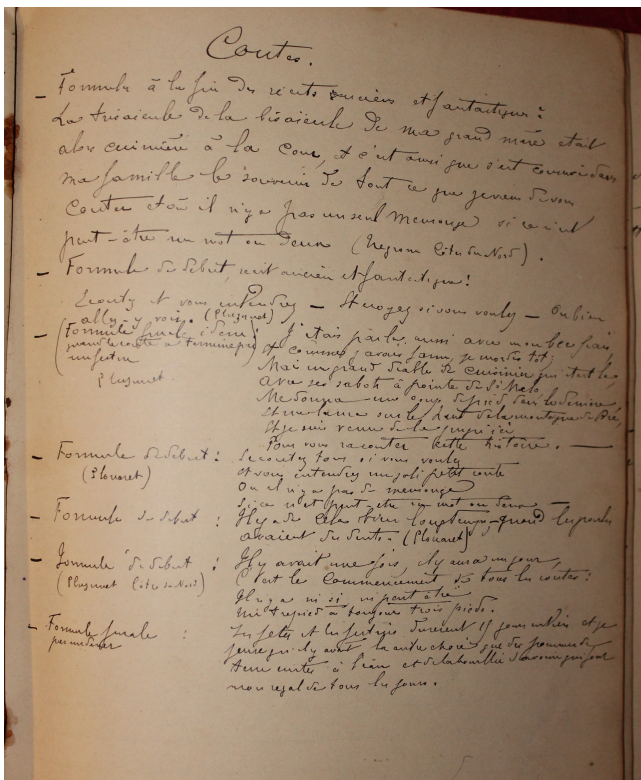 Contes.
– Formule à la fin des récits anciens et fantastiques :
La trisaieule de la bisaieule de ma grand mère était
alors cuisinière à la Cour, et c'est ainsi que s'est conservé dans
ma famille le souvenir de tout ce que je viens de vous
conter et où il n'y a pas un seul mensonge si ce n'est
peut-être un mot ou deux (Côtes du Nord).
– Formule de début, récit ancien et fantastique !
Ecoutez et vous entendrez – Et croyez si vous voulez – ou bien
allez-y voir. (Plusunet)
– (Formule finale idem :
quand le conte a terminé par
un festin
Plusunet
J'étais par là, aussi avec mon bec frais
Et comme j'avais faim, je mordis tôt ;
Mais un grand diable de cuisinier qui était là,
Avec ses sabots à pointe de St Malo
Me donna un coup de pied dans le derrière
Et me lança sur le haut de la montagne de Bré,
Et je suis venu de là jusqu'ici
Pour vous raconter cette histoire. –
– Formule de début : Ecoutez tous si vous voulez
(Plouaret) Et vous entendrez un joli petit conte
Où il n'y a pas de mensonge
Si ce n'est peut-être un mot ou deux
– Formule de début : Il y a de cela bien longtemps, quand les poules
avaient des dents – (Plouaret)
– Formule de début : Il y avait une fois, il y aura un jour,
(Plusunet Côtes du Nord) C'est le commencement de tous les contes :
Il n'y a ni si, ni peut être
Un trépied a toujours trois pieds.
– Formule finale : Les fêtes et les festins durèrent 15 jours entiers et je
pense qu'il y avait là autre chose que des pommes de
terre cuites à l'eau et de la bouillie d'avoine qui font
mon régal de tous les jours.